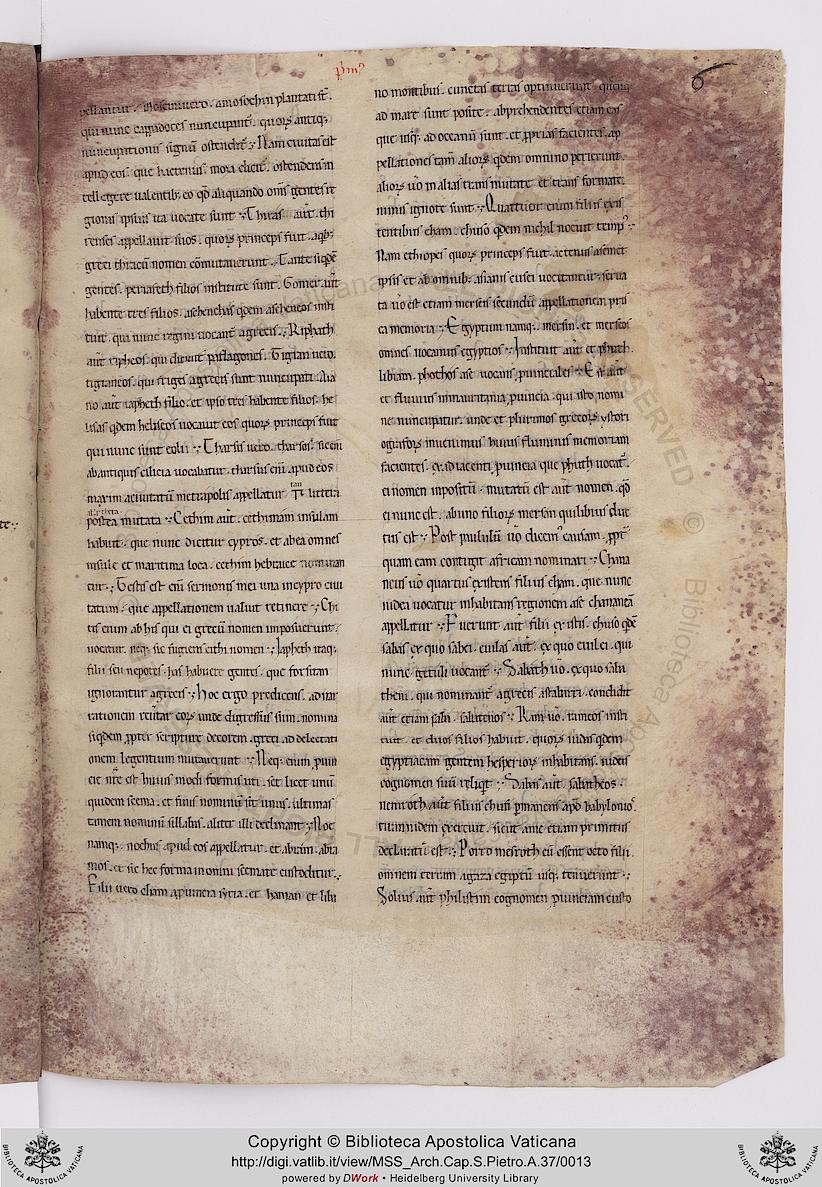 pͥmꝰ
6
pellantur. Mosem uero. a mosochin plantati st̄.
qui nunc cappadoces nuncupant᷑. quoꝝ antiq;
nuncupationis signū ostendit᷑. Nam ciuitas est
apud eos. que hactenus. mora dicit᷑. ostendens in
tellegere ualentib; eo qd̄ aliquando om̄s gentes re
gionis ipsius ita uocate sunt. Thiras aut̄. thi
renses appellauit suos. quoꝝ princeps fuit. aqb;
greci thraciū nomen cōmutauerunt. Tante siqdē
gentes. per iapheth filios institute sunt. Gomer aut̄
habente tres filios. aschenchas qdem ascheneos insti
tuit. qui nunc regini uocant᷑ agrecis. Riphath
aut̄ ripheos. qui dicunt᷑ paflagones. Tigran uero.
tigraneos. qui friges agrecis sunt nuncupati. Iua
no aut̄ iapheth filio. et ipso tres habente filios. he
lisas qdem heliseos uocauit eos quoꝝ princeps fuit
qui nunc sunt eolii. Tharsus uero. tharsos. sicem̄
ab antiquis cilicia uocabatur. tharsus em̄ apud eos
maxim aciuitatū metropolis appellatur. T littera
postea mutata. Cethim aut̄. cethimam insulam
habuit. que nunc dicitur cypros. et abea omnes
insule et maritima loca. cethim hebraice nominan
tur. Testis est em̄ sermonis mei una incypro ciui
tatum. que appellationem ualuit retinere. Chi
tis enim ab his qui ei grecū nomen imposuerunt.
uocatur. neq; sic fugiens cithi nomen. Iapheth itaq;
filii seu nepotes. has habuere gentes. que forsitan
ignorantur agrecis. Hoc ergo predicens. ad nar
rationem reūtar eoꝝ unde digressus sum. nomina
siqdem ꝓpter scripture decorem. greci ad delectati
onem legentium mutauerunt. Neq; enim ꝓuin
cie nr̄e est huius modi formis uti. set licet unū
quidem scema. et finis nominū sit unus. ultimas
tamen nominū sillabas. aliter illi declinant. Noe
namq;. nochus apud eos appellatur. et abrām. abra
mos. et sic hec forma in omni scemate custoditur.
Filii uero cham aꝓuincia syria. et haman et liba
no montibus. cunctas terras optinuerunt. quecūq;
ad mare sunt posite. abprehendentes etiam eas
que usq; ad oceanū sunt. et ꝓprias facientes. ap
pellationes tam̄ alioꝝ qdem omnino perierunt.
alioꝝ ūo in alias trans mutate et trans formate.
nimis ignote sunt. Quattuor enim filiis exis
tentibus cham. chuso qdem nichil nocuit tempꝰ.
Nam ethiopes quoꝝ princeps fuit. actenus asemet
ipsis et ab omnib; asianis cusei uocitantur. serua
ta ūo est etiam merseis secundū appellationem pris
ca memoria. Egyptum namq; mersin. et merseos
omnes uocamus egyptios. Instituit aut̄ et phuth.
libiam. phothos ase uocans. ꝓuinciales. Est aut̄
et fluuius inmauritania ꝓuincia. qui isto nomi
ne nuncupatur. unde et plurimos grecoꝝ ystori
ografoꝝ inuenimus huius fluminis memoriam
facientes. ex adiacenti ꝓuincia que phuth uocat᷑.
ei nomen inpositū. mutatū est aut̄ nomen. qd̄
ei nunc est. ab uno filioꝝ mersan quilibius dic
tus est. Post paululū ūo dicemꝰ causam. ꝓpt̄
quam eam contigit africam nominari. Chana
neus ūo quartus existens filius cham. que nunc
iudea uocatur inhabitans regionem. ase chananeā
appellatur. Fuerunt aut̄ filii ex istis. chuso qdē
sabas ex quo sabei. euilas aut̄. ex quo euilei. qui
nunc getuli uocant᷑. Sabath ūo. ex quo saba
theni. qui nominant᷑ agrecis. astabarri. concludit
aut̄ etiam psam. sabatenos. Ram ūo. rameos insti
tuit. et duos filios habuit. quoꝝ iudas qdem
egyptiacam gentem hesperioꝝ inhabitans. iudeis
cognomen suū reliqt. Sabas aut̄. sabatheos.
nemroth aut̄ filius chusi ꝑmanens apd̄ babylonios.
tirannidem exercuit. sicut ante etiam primitus
declaratū est. Porro mesroth cū essent octo filii
omnem terram agaza egiptū usq; tenuerunt.
Solius aut̄ philistim cognomen ꝓuinciam custo
Copyright © Biblioteca Apostolica Vaticana
http://digi.vatlib.it/view/MSS_Arch.Cap.S.Pietro.A.37/0013
powered by DWork • Heidelberg University Library